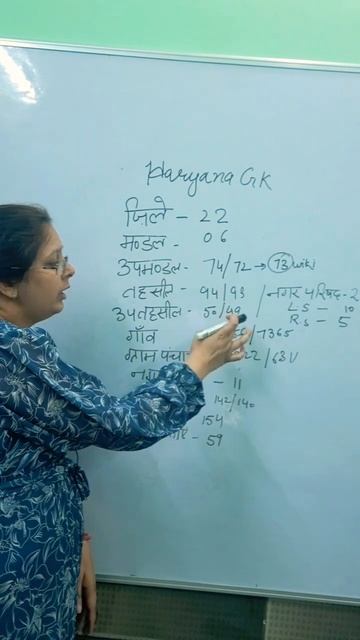 Haryana GK
जिले - 22
मण्डल - 06
उपमण्डल - 74/72 → 73 wiki
तहसील - 94/93 / नगर परिषद - 2
उपतहसील - 50/49 LS = 10
गाँव /7365 R.S = 5
ग्राम पंचा 22/
- 11
142/140
154
- 59